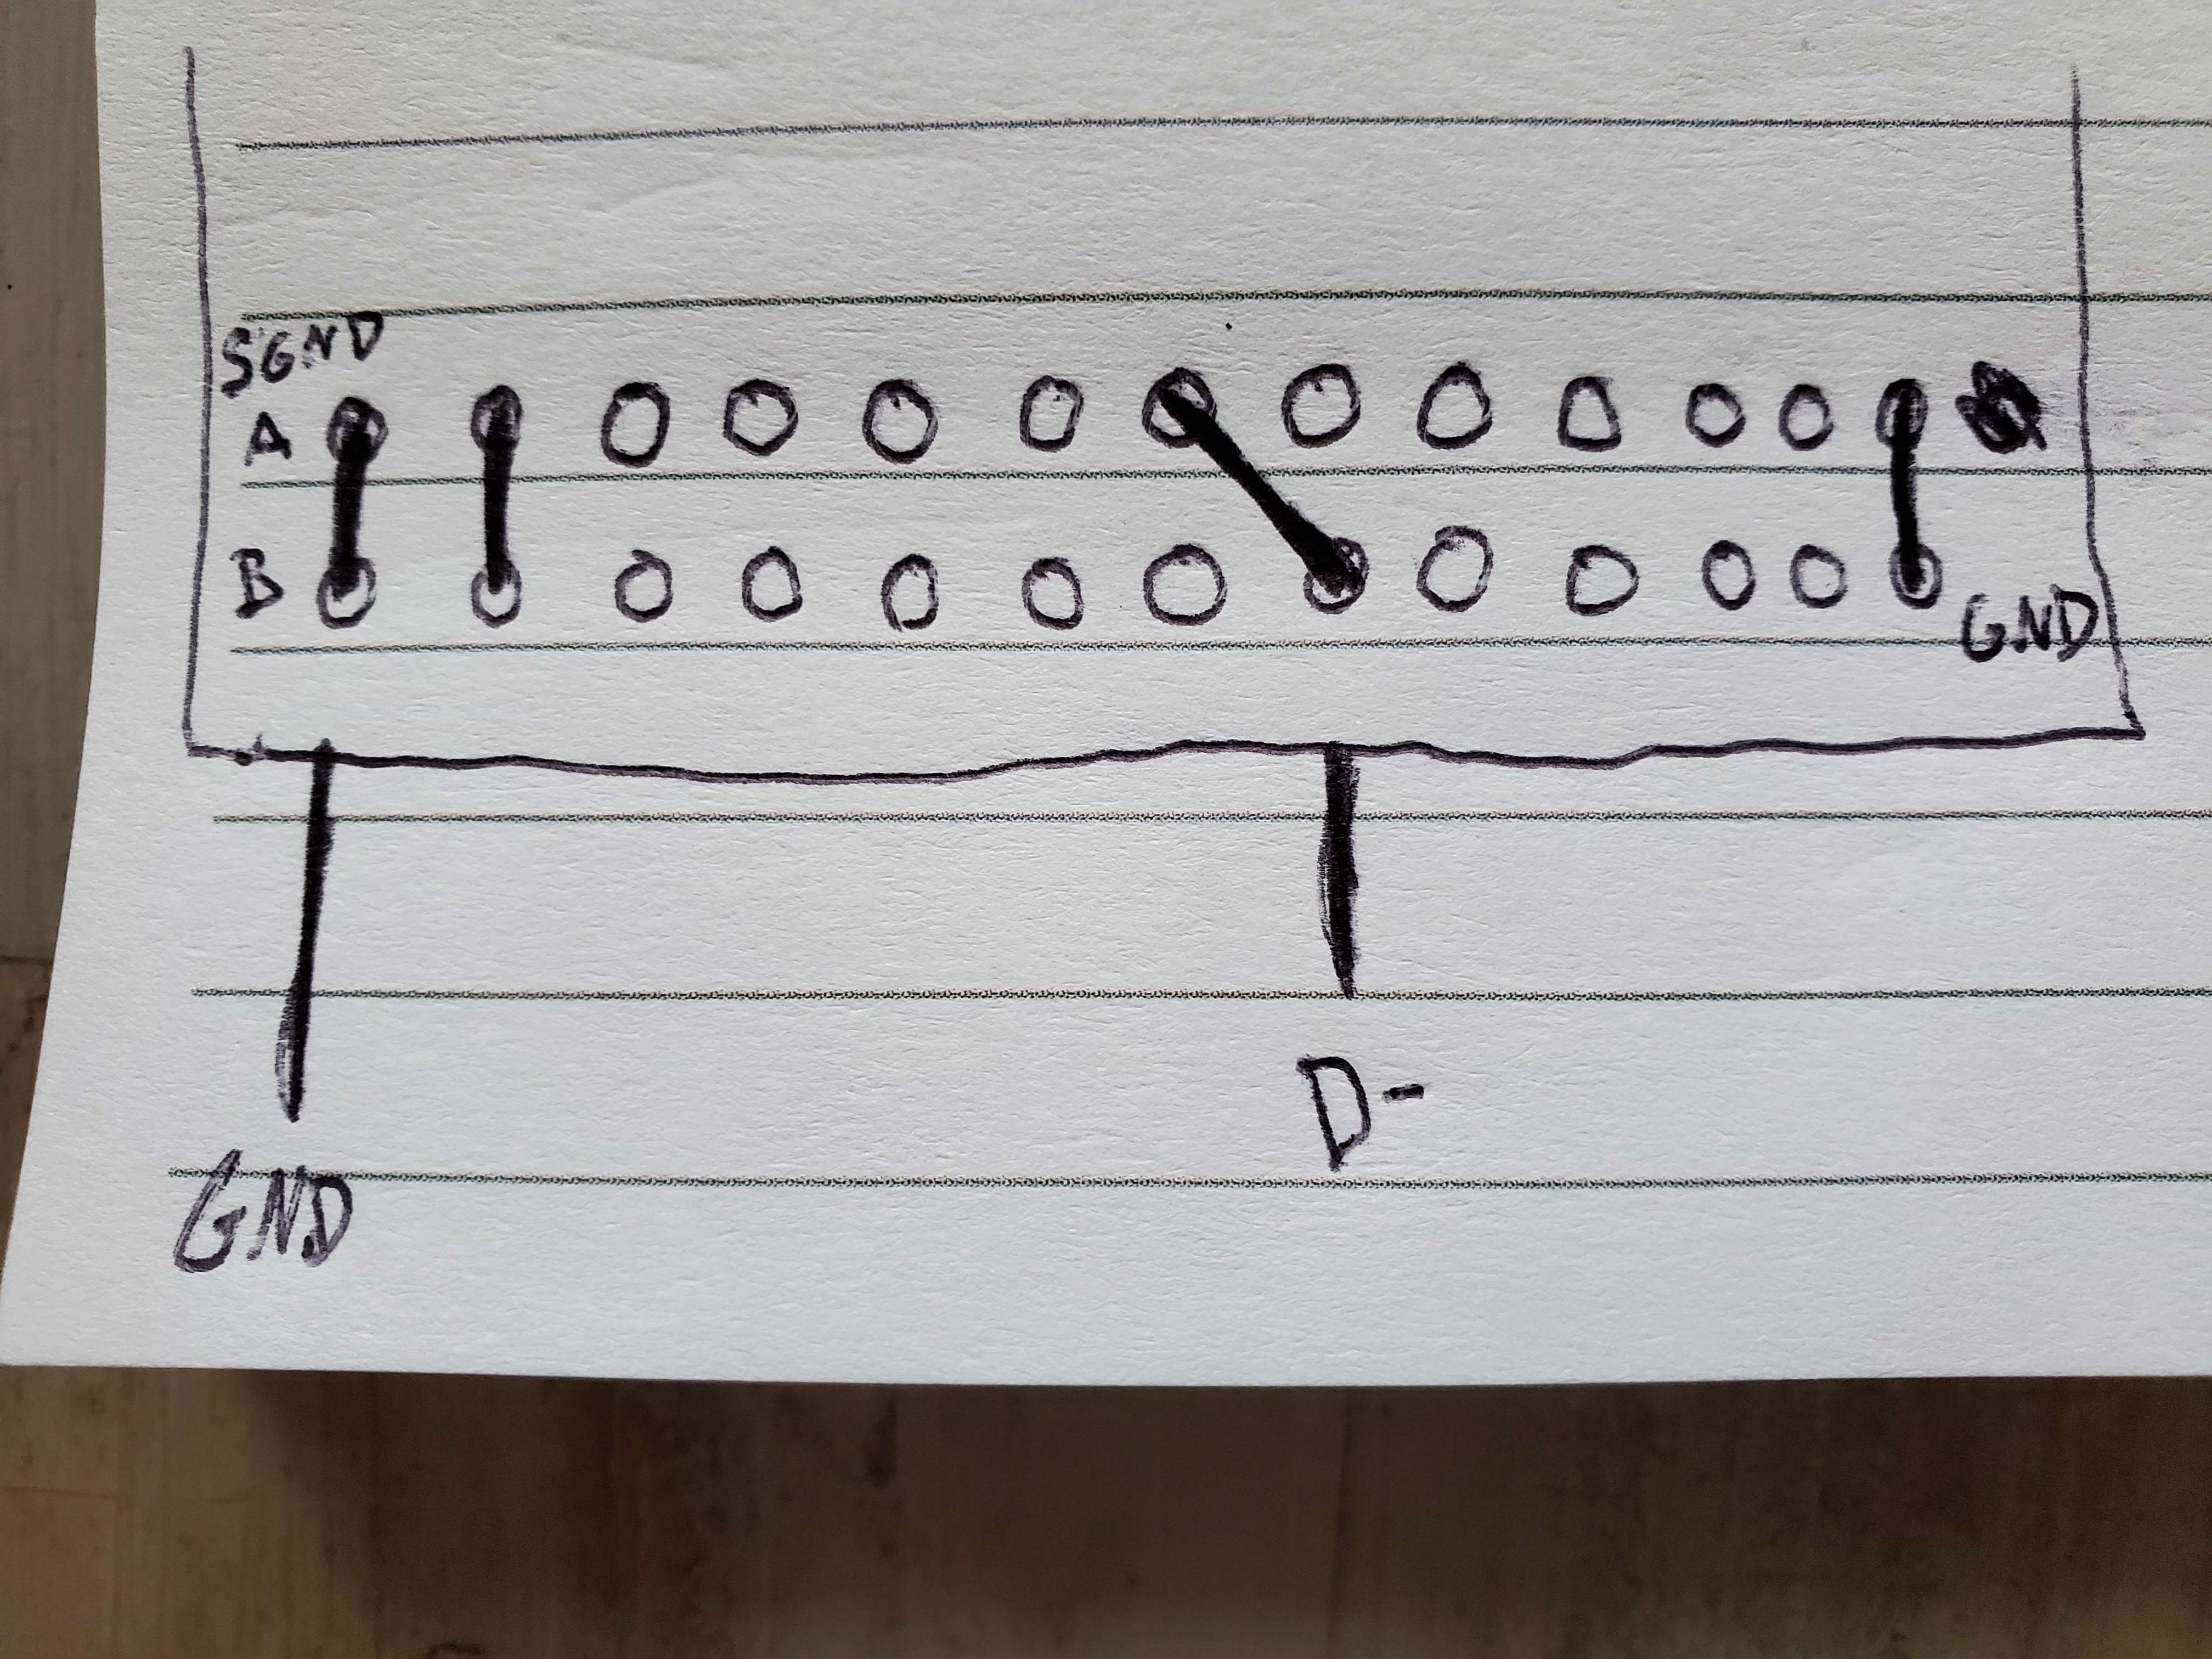 SGND
A
B
GND
D-
GND